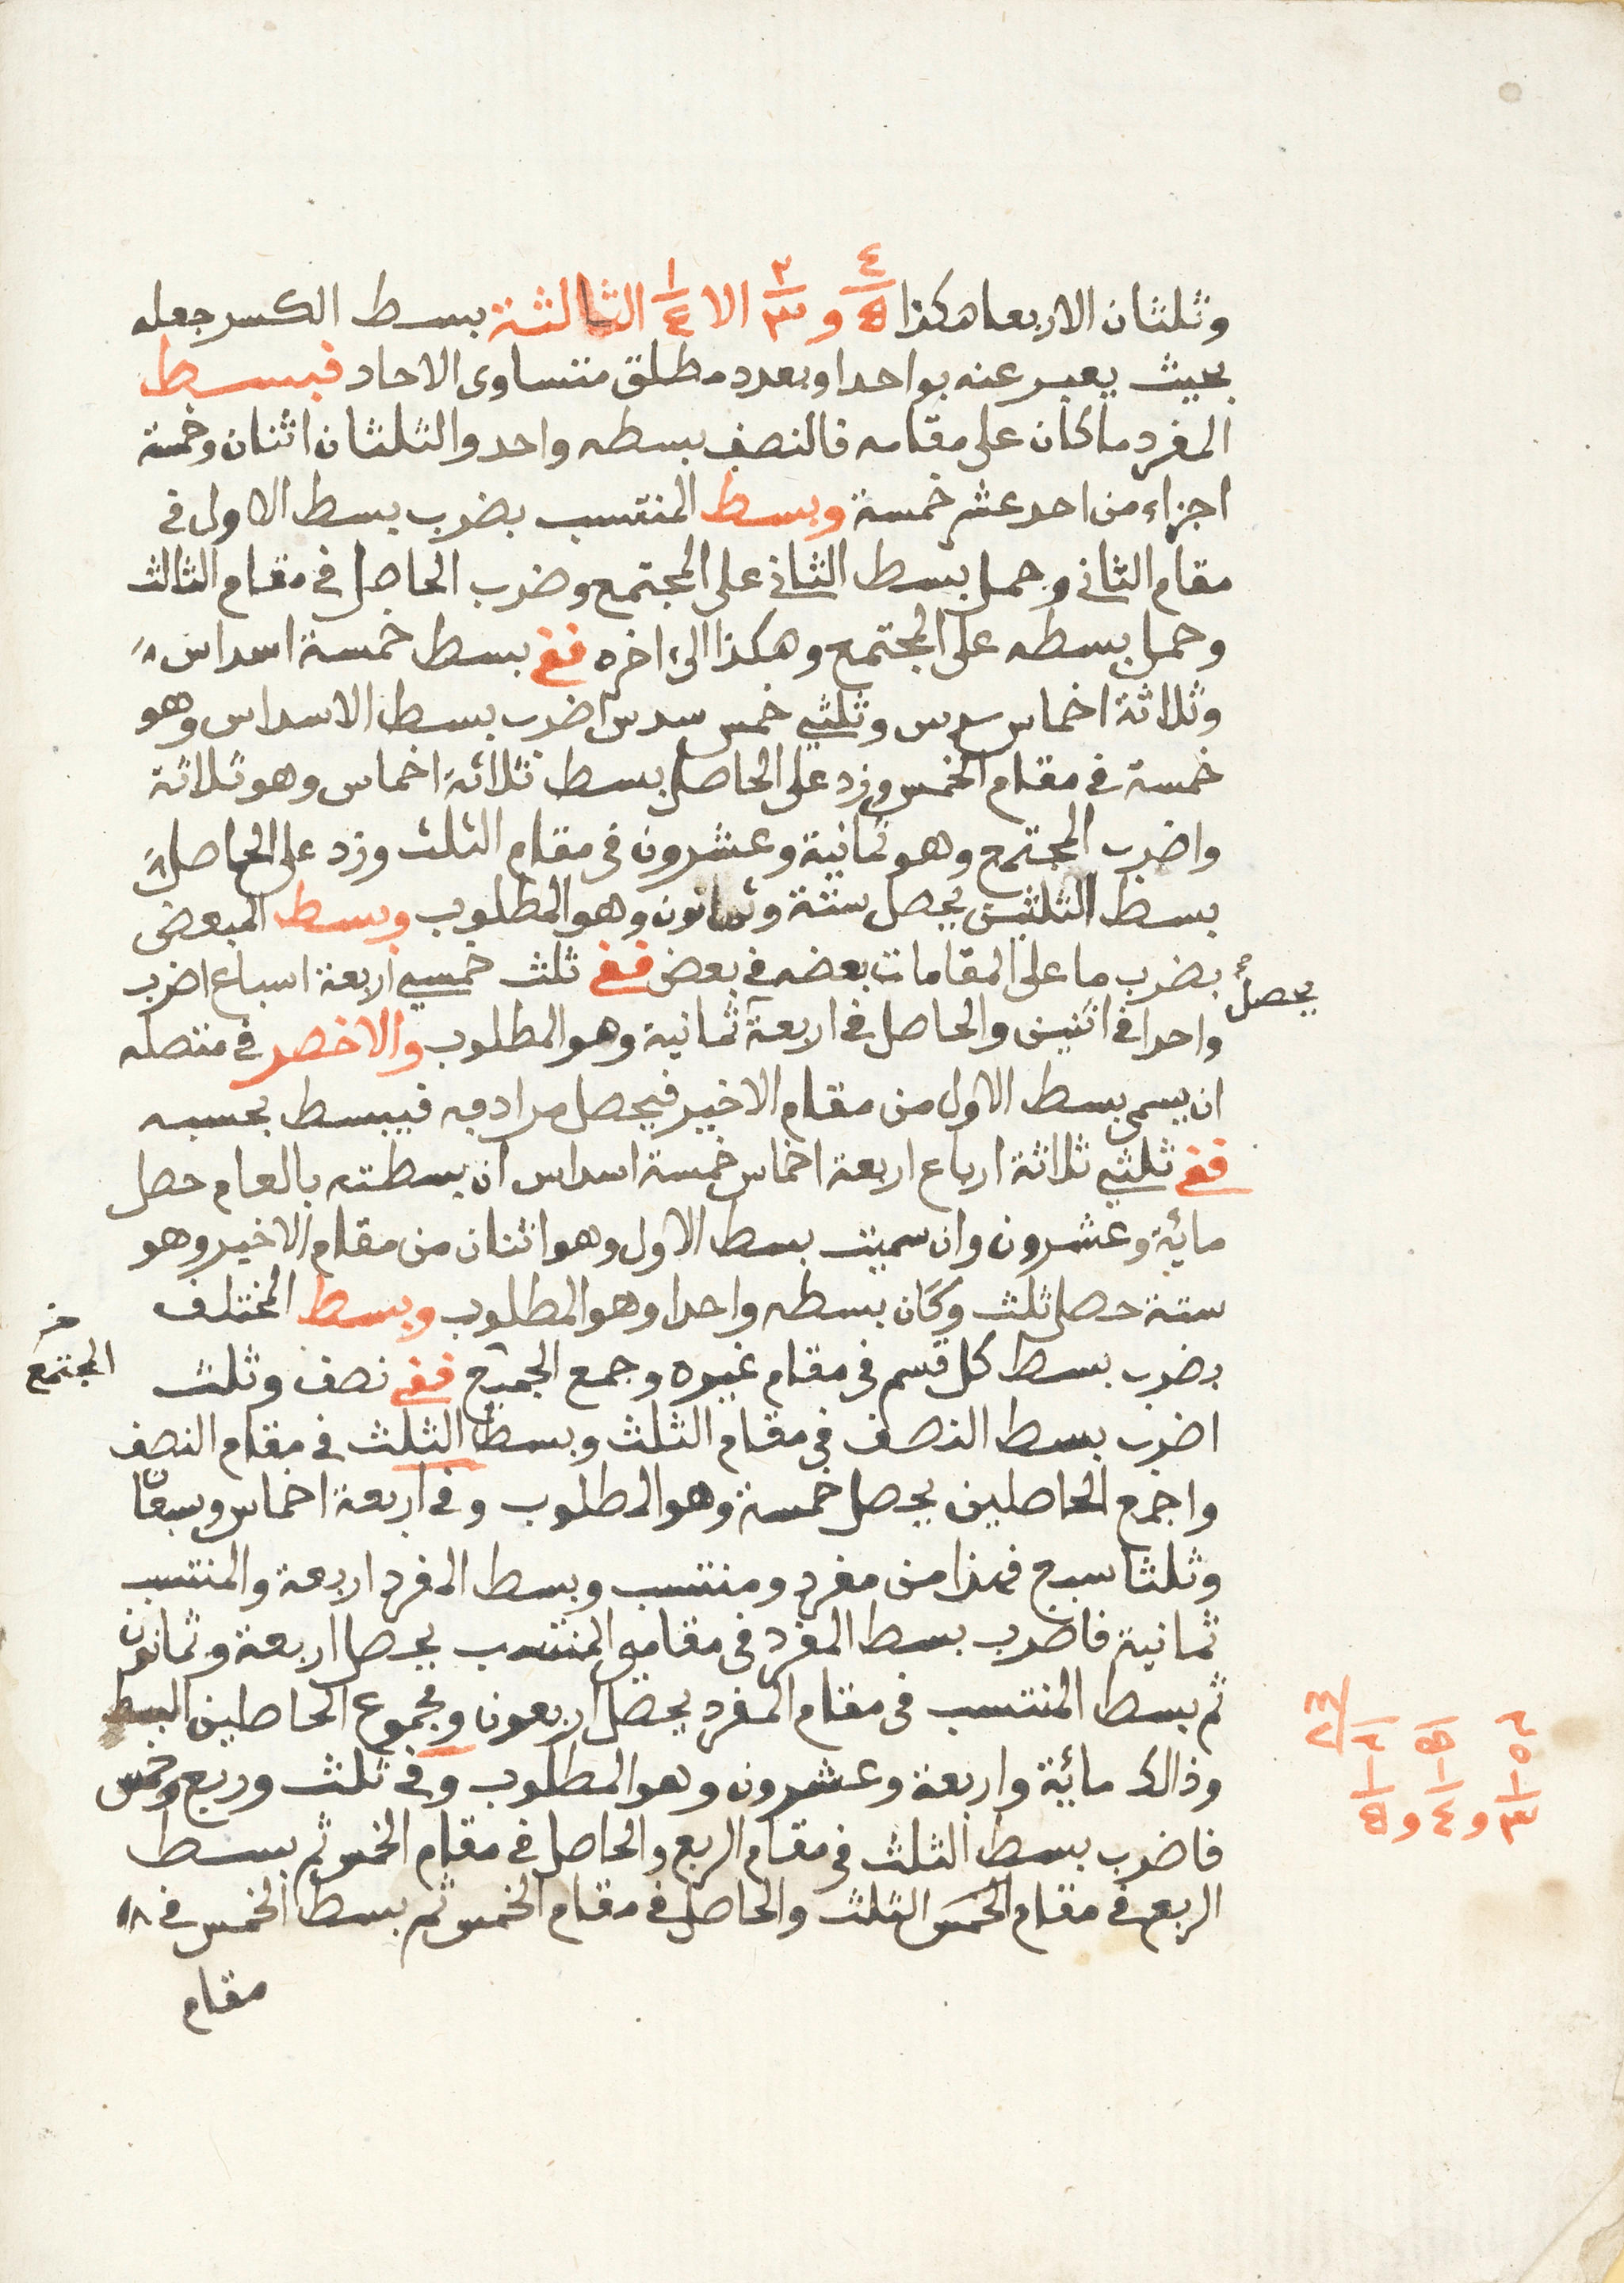 وثلثان الا ربعا هكذا ٤/٥ و ٢/٣ الا ١/٤ الثالثة بسط الكسر جعله
بحيث يعبر عنه بواحد او بعدد مطلق متساوى الاحاد فبسط
المفرد ما كان على مقامه فالنصف بسطه واحد والثلثان اثنان وخمسة
اجزاء من احد عشر خمسة وبسط المنتسب بضرب بسط الاول في
مقام الثاني وحمل بسط الثاني على المجتمع وضرب الحاصل في مقام الثالث
وحمل بسطه على المجتمع وهكذا الى اخره ففي بسط خمسة اسداس
وثلاثة اخماس سدس وثلثي خمس سدس اضرب بسط الاسداس وهو
خمسة في مقام الخمس وزد على الحاصل بسط ثلاثة اخماس وهو ثلاثة
واضرب المجتمع وهو ثمانية وعشرون في مقام الثلث وزد على الحاصل
بسط الثلثين يحصل ستة وثمانون وهو المطلوب وبسط المبعض
بضرب ما على المقامات بعضه في بعض ففي ثلث خمسي اربعة اسباع اضرب
يحصل
واحدا في اثنين والحاصل في اربعة ثمانية وهو المطلوب والاخصر في متصله
ان يسمى بسط الاول من مقام الاخير فيحصل مرادفه فيبسط بحسبه
ففي ثلثي ثلاثة ارباع اربعة اخماس خمسة اسداس ان بسطته بالعام حصل
مائة وعشرون وان سميت بسط الاول وهو اثنان من مقام الاخير وهو
ستة حصل ثلث وكان بسطه واحدا وهو المطلوب وبسط المختلف
بضرب بسط كل قسم في مقام غيره وجمع الجميع ففي نصف وثلث
المجتمع
اضرب بسط النصف في مقام الثلث وبسط الثلث في مقام النصف
واجمع الحاصلين يحصل خمسة وهو المطلوب وفي اربعة اخماس وسبعان
وثلثا سبع فهذا من مفرد ومنتسب وبسط المفرد اربعة والمنتسب
ثمانية فاضرب بسط المفرد في مقامي المنتسب يحصل اربعة وثمانون
ثم بسط المنتسب في مقام المفرد يحصل اربعون ومجموع الحاصلين البسط
وذالك مائية واربعة وعشرون وهو المطلوب وفي ثلث وربع وخمس
فاضرب بسط الثلث في مقام الربع والحاصل في مقام الخمس ثم بسط
١/٣ و ١/٤ و ١/٥
الربع في مقام الثلث والحاصل في مقام الخمس ثم بسط الخمس في
مقام